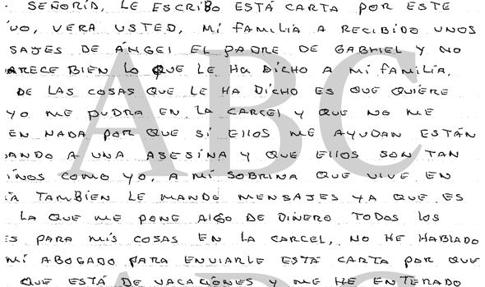 SEÑORIA, LE ESCRIBO ESTÁ CARTA POR ESTE
VERA USTED, Mi FAMILIA A RECIBIDO UNOS
SAJES DE ÁNGEL EL PADRE DE GABRIEL Y NO
ARECE BIEN LO QUE LE HA DICHO A Mi FAMILIA,
DE LAS COSAS QUE LE HA DICHO ES QUE QUIERE
YO ME PUDRA EN LA CARCEL Y QUE NO ME
EN NADA POR QUE Si ELLOS ME AYUDAN ESTÁN
ANDO A UNA ASESINA Y QUE ELLOS SON TAN
INOS COMO YO, A Mi SOBRINA QUE VIVE EN
TAMBIEN LE MANDO MENSAJES YA QUE ES
LA QUE ME PONE ALGO DE DINERO TODOS LOS
S PARA MIS COSAS EN LA CARCEL, NO HE HABLADO
Mi ABOGADO PARA ENVIARLE ESTÁ CARTA POR QUE
QUE ESTÁ DE VACACIONES Y ME HE ENTERADO
ABC